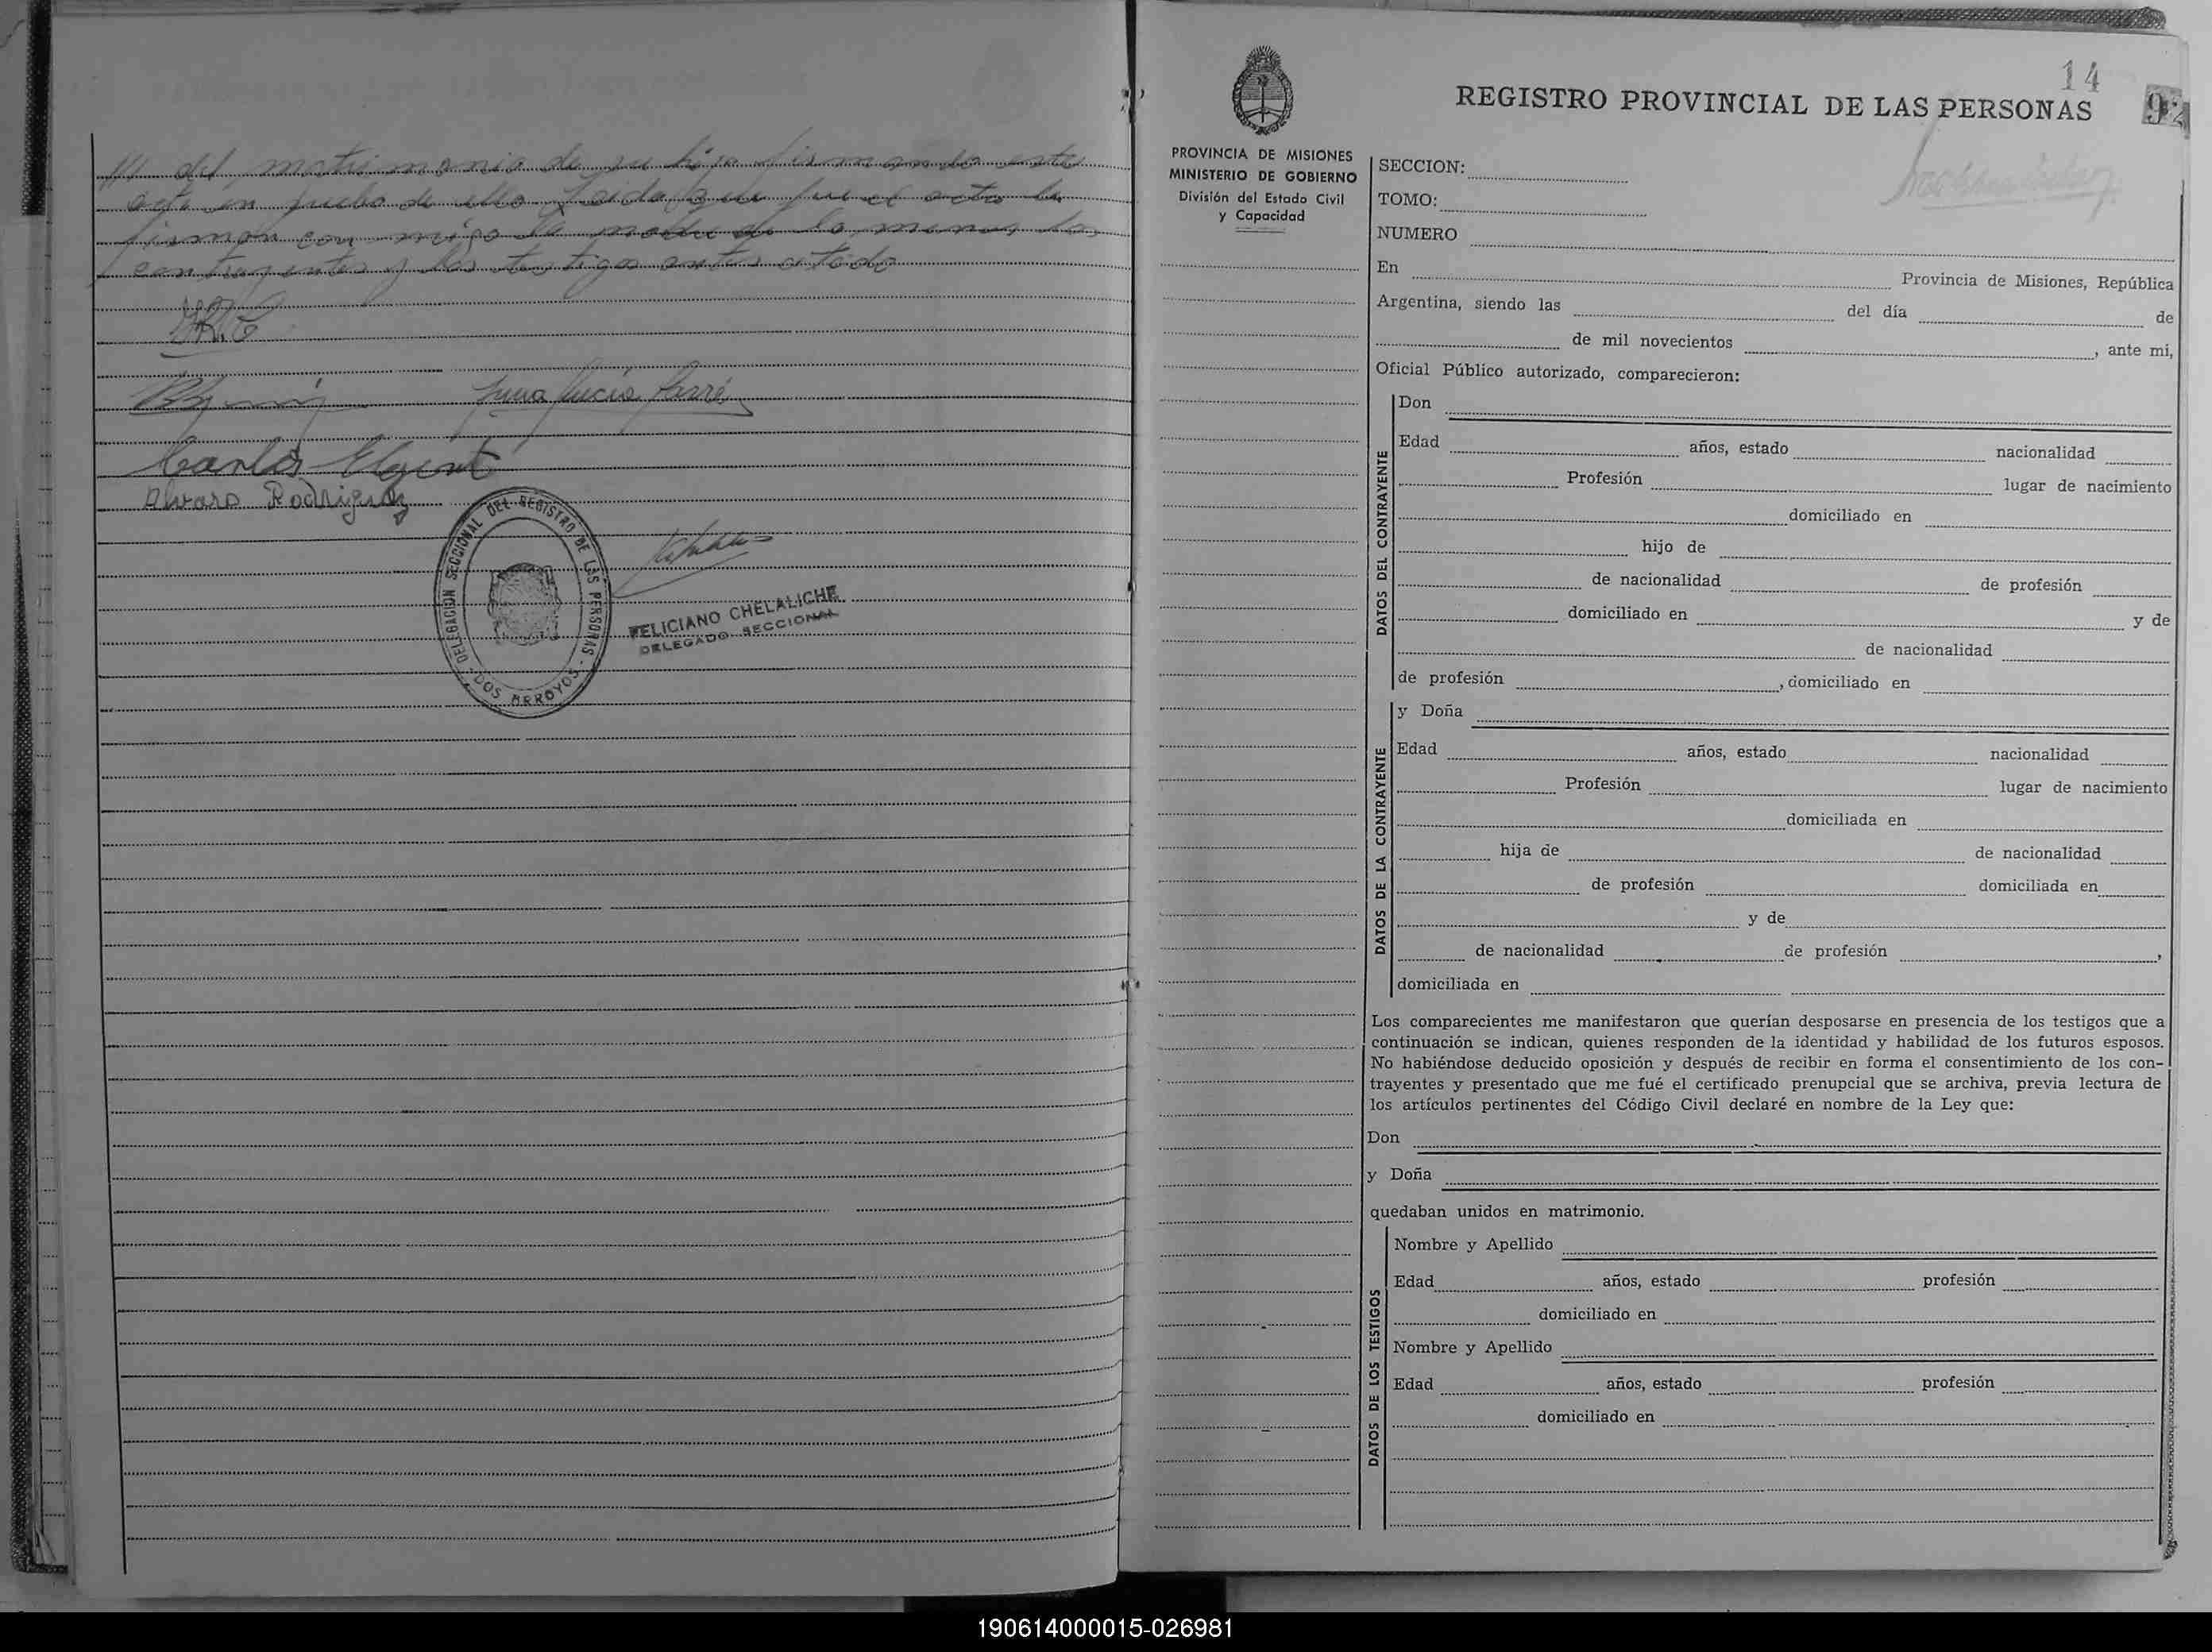 /// del matrimonio de su hija firmando este
acta en prueba de ello Leida que fue el acta la
firman con migo la madre de la menor los
contrayentes y los testigos antes citado
Juna Lucia
Carlos
Alvaro Rodriguez
DELEGACION SECCIONAL DEL REGISTRO DE LAS PERSONAS - DOS ARROYOS -
FELICIANO CHELALICHE
DELEGADO SECCIONAL
14
REGISTRO PROVINCIAL DE LAS PERSONAS
PROVINCIA DE MISIONES
MINISTERIO DE GOBIERNO
División del Estado Civil
y Capacidad
SECCION:
TOMO:
NUMERO
En Provincia de Misiones, República
Argentina, siendo las del día de
de mil novecientos , ante mi,
Oficial Público autorizado, comparecieron:
DATOS DEL CONTRAYENTE
Don
Edad años, estado nacionalidad
Profesión lugar de nacimiento
domiciliado en
hijo de
de nacionalidad de profesión
domiciliado en y de
de nacionalidad
de profesión , domiciliado en
DATOS DE LA CONTRAYENTE
y Doña
Edad años, estado nacionalidad
Profesión lugar de nacimiento
domiciliada en
hija de de nacionalidad
de profesión domiciliada en
y de
de nacionalidad de profesión ,
domiciliada en
Los comparecientes me manifestaron que querían desposarse en presencia de los testigos que a
continuación se indican, quienes responden de la identidad y habilidad de los futuros esposos.
No habiéndose deducido oposición y después de recibir en forma el consentimiento de los con-
trayentes y presentado que me fué el certificado prenupcial que se archiva, previa lectura de
los artículos pertinentes del Código Civil declaré en nombre de la Ley que:
Don
y Doña
quedaban unidos en matrimonio.
DATOS DE LOS TESTIGOS
Nombre y Apellido
Edad años, estado profesión
domiciliado en
Nombre y Apellido
Edad años, estado profesión
domiciliado en
190614000015-026981